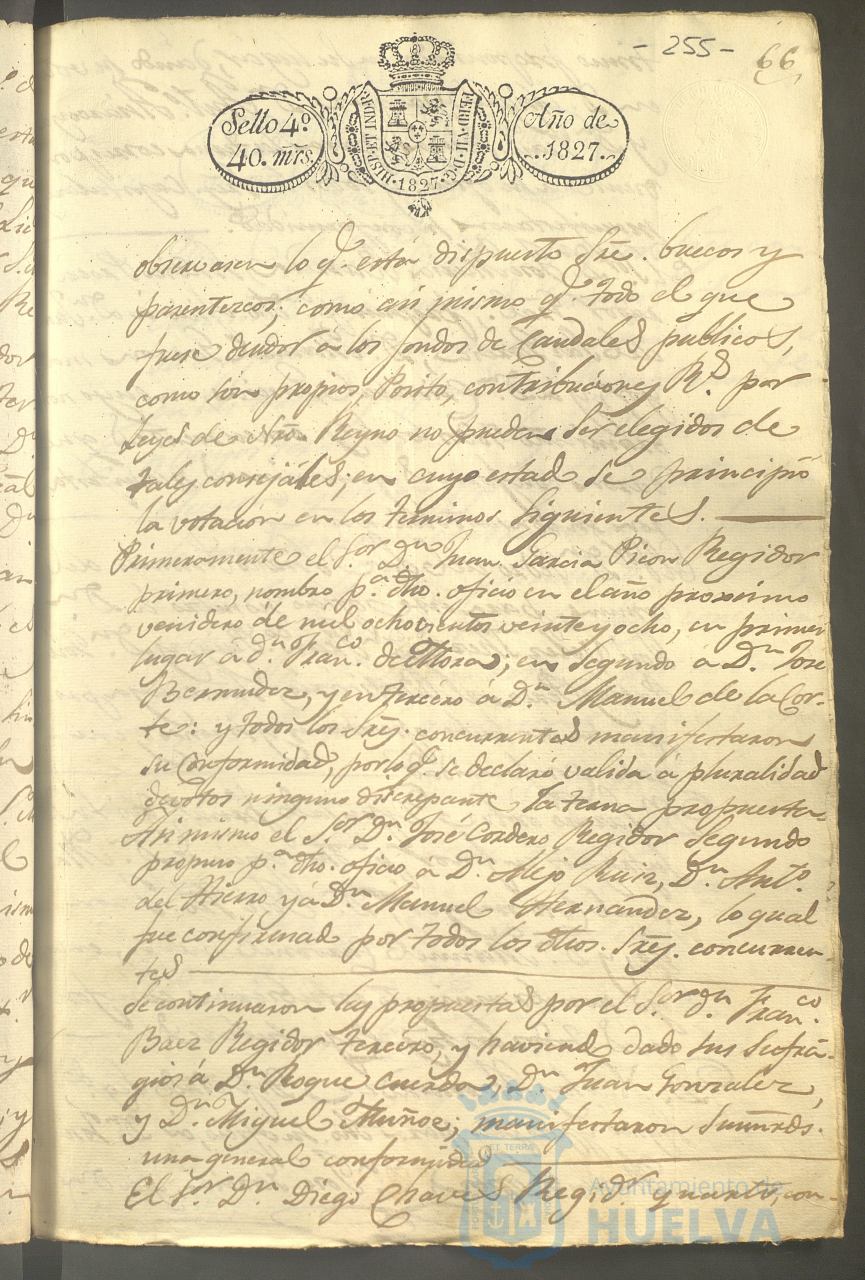 - 255 -
66
Sello 4º
40. mrs.
HISP. ET IND. R.
FERD. VII. D. G.
1827
Año de
1827.
observasen lo q. está dispuesto Sre. huecos y
parentezcos; como asi mismo q. todo el que
fuese deudor á los fondos de Caudales publicos,
como són propios, Posito, contribuciones Rs. por
Leyes de Nro. Reyno no pueden Ser elegidos de
tales consejáles; en cuyo estado se principió
la votacion en los terminos Siguientes.
Primeramente el Sor. Dn. Juan Garcia Picon Regidor
primero, nombro pa. dho. oficio en el año proximo
venidero de mil ochocientos veinte y ocho, en primer
lugar á dn. Franco. de Mora; en Segundo á Dn. José
Bermudez, y en tercéro á Dn. Manuel de la Cor-
te: y todos los Sres. concurrentes manifestaron
su conformidad, por lo q. se declaró valida á pluralidad
de votos ninguno discrepante la terna propuesta.
Asi mismo el Sor. Dn. José Cordero Regidor Segundo
propuso pa. dho. oficio á Dn. Alejo Ruiz, Dn. Anto.
del Hierro y á Dn. Manuel Hernandez, lo qual
fue confirmado por todos los dhos. Sres. concurren-
tes
Se continuaron las propuestas por el Sor. dn. Franco.
Baez Regidor tercéro, y haviendo dado sus Sufrá-
gios á Dn. Roque Cuerda, Dn. Juan Gonzalez,
y Dn. Miguel Muñoz; manifestaron Sumrds.
una general conformidad
El Sor. Dn. Diego Chaves Regidr. quarto, con-
Ayuntamiento de
HUELVA